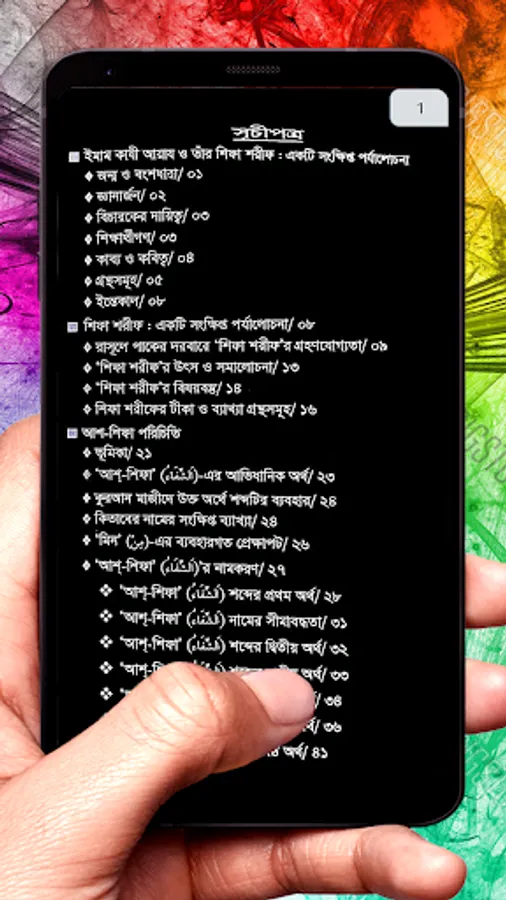 1
সূচীপত্র
ইমাম কাযী আয়ায ও তাঁর শিফা শরীফ : একটি সংক্ষিপ্ত পর্যালোচনা
♦ জন্ম ও বংশধারা/ ০১
♦ জ্ঞানার্জন/ ০২
♦ বিচারকের দায়িত্ব/ ০৩
♦ শিক্ষার্থীগণ/ ০৩
♦ কাব্য ও কবিত্ব/ ০৪
♦ গ্রন্থসমূহ/ ০৫
♦ ইন্তেকাল/ ০৮
শিফা শরীফ : একটি সংক্ষিপ্ত পর্যালোচনা/ ০৮
♦ রাসূলে পাকের দরবারে 'শিফা শরীফ'র গ্রহণযোগ্যতা/ ০৯
♦ 'শিফা শরীফ'র উৎস ও সমালোচনা/ ১৩
♦ 'শিফা শরীফ'র বিষয়বস্তু/ ১৪
♦ শিফা শরীফের টীকা ও ব্যাখ্যা গ্রন্থসমূহ/ ১৬
আশ-শিফা পরিচিতি
♦ ভূমিকা/ ২১
♦ 'আশ্-শিফা' (الشِّفَاء)-এর আভিধানিক অর্থ/ ২৩
♦ কুরআন মাজীদে উক্ত অর্থে শব্দটির ব্যবহার/ ২৪
♦ কিতাবের নামের সংক্ষিপ্ত ব্যাখ্যা/ ২৪
♦ 'মিন' (مِنْ)-এর ব্যবহারগত প্রেক্ষাপট/ ২৬
♦ 'আশ্-শিফা' (الشِّفَاء)'র নামকরণ/ ২৭
❖ 'আশ্-শিফা' (الشِّفَاء) শব্দের প্রথম অর্থ/ ২৮
❖ 'আশ্-শিফা' (الشِّفَاء) নামের সীমাবদ্ধতা/ ৩১
❖ 'আশ্-শিফা' (الشِّفَاء) শব্দের দ্বিতীয় অর্থ/ ৩২
❖ 'আশ্-শিফা' (الشِّفَاء) অর্থ/ ৩৩
❖ / ৩৪
❖ / ৩৬
অর্থ/ ৪১